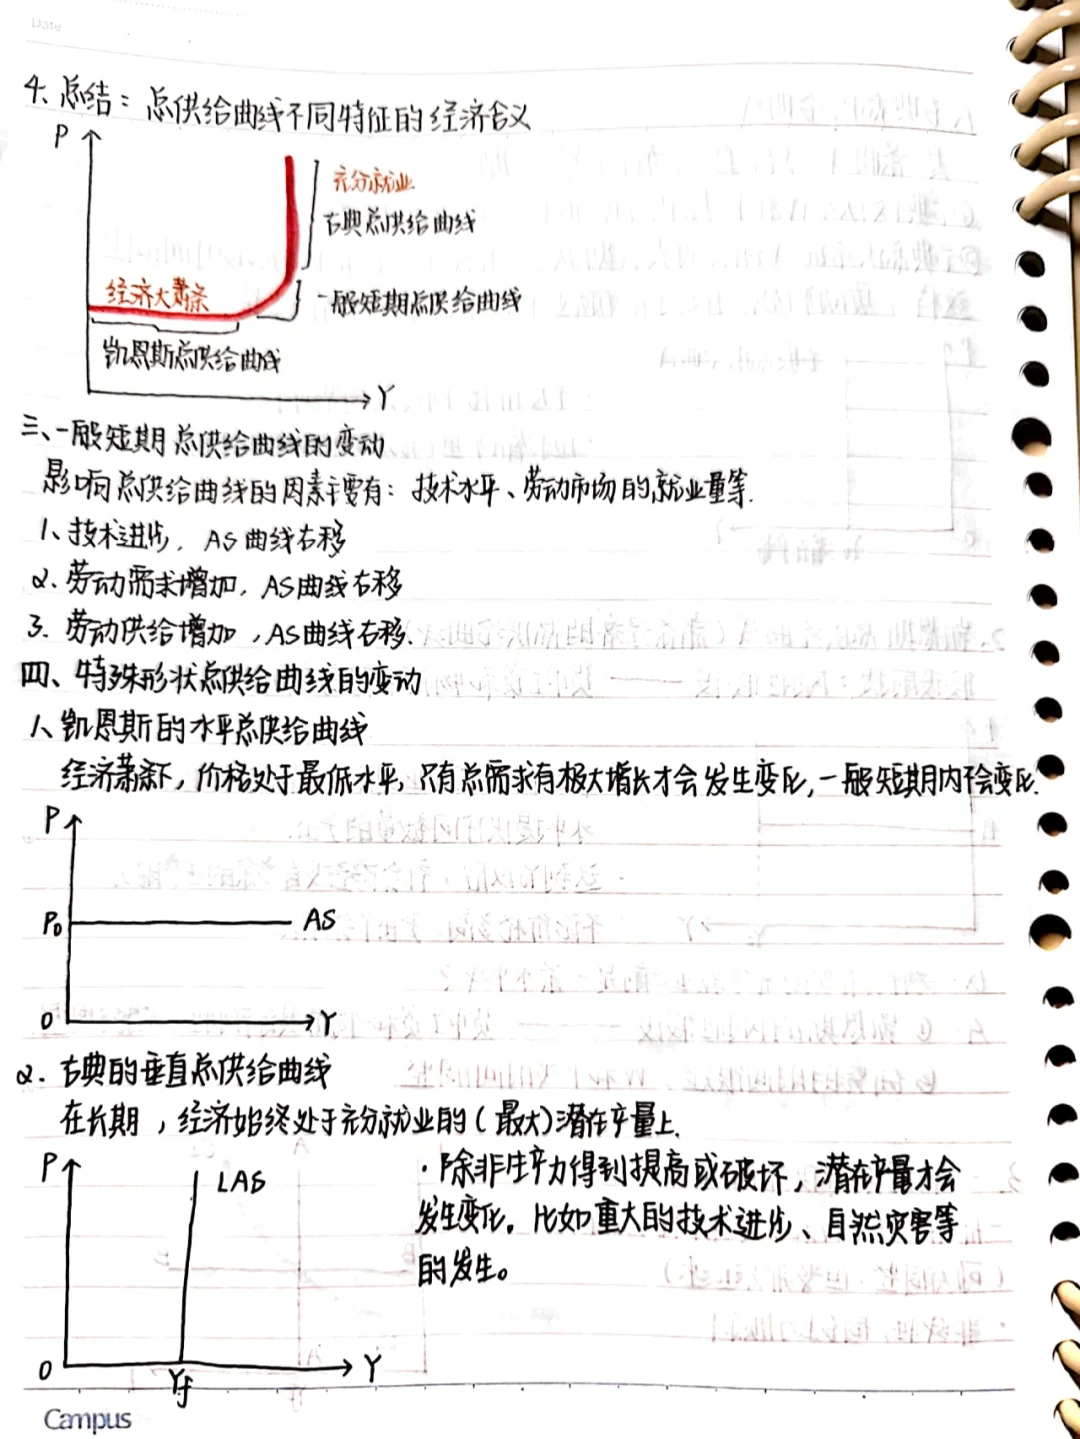 Date
4、总结：总供给曲线不同特征的经济含义
P
充分就业
古典总供给曲线
经济大萧条
一般短期总供给曲线
凯恩斯总供给曲线
Y
三、一般短期总供给曲线的变动
影响总供给曲线的因素主要有：技术水平、劳动市场的就业量等.
1、技术进步，AS曲线右移
2.劳动需求增加，AS曲线右移
3.劳动供给增加，AS曲线右移.
四、特殊形状总供给曲线的变动
1、凯恩斯的水平总供给曲线
经济萧条下，价格处于最低水平，只有总需求有极大增长才会发生变化，一般短期内不会变化.
P
P0 AS
0 Y
2.古典的垂直总供给曲线
在长期，经济始终处于充分就业的(最大)潜在产量上.
P
LAS
·除非生产力得到提高或破坏，潜在产量才会
发生变化。比如重大的技术进步、自然灾害等
的发生。
0 Yf Y
Campus